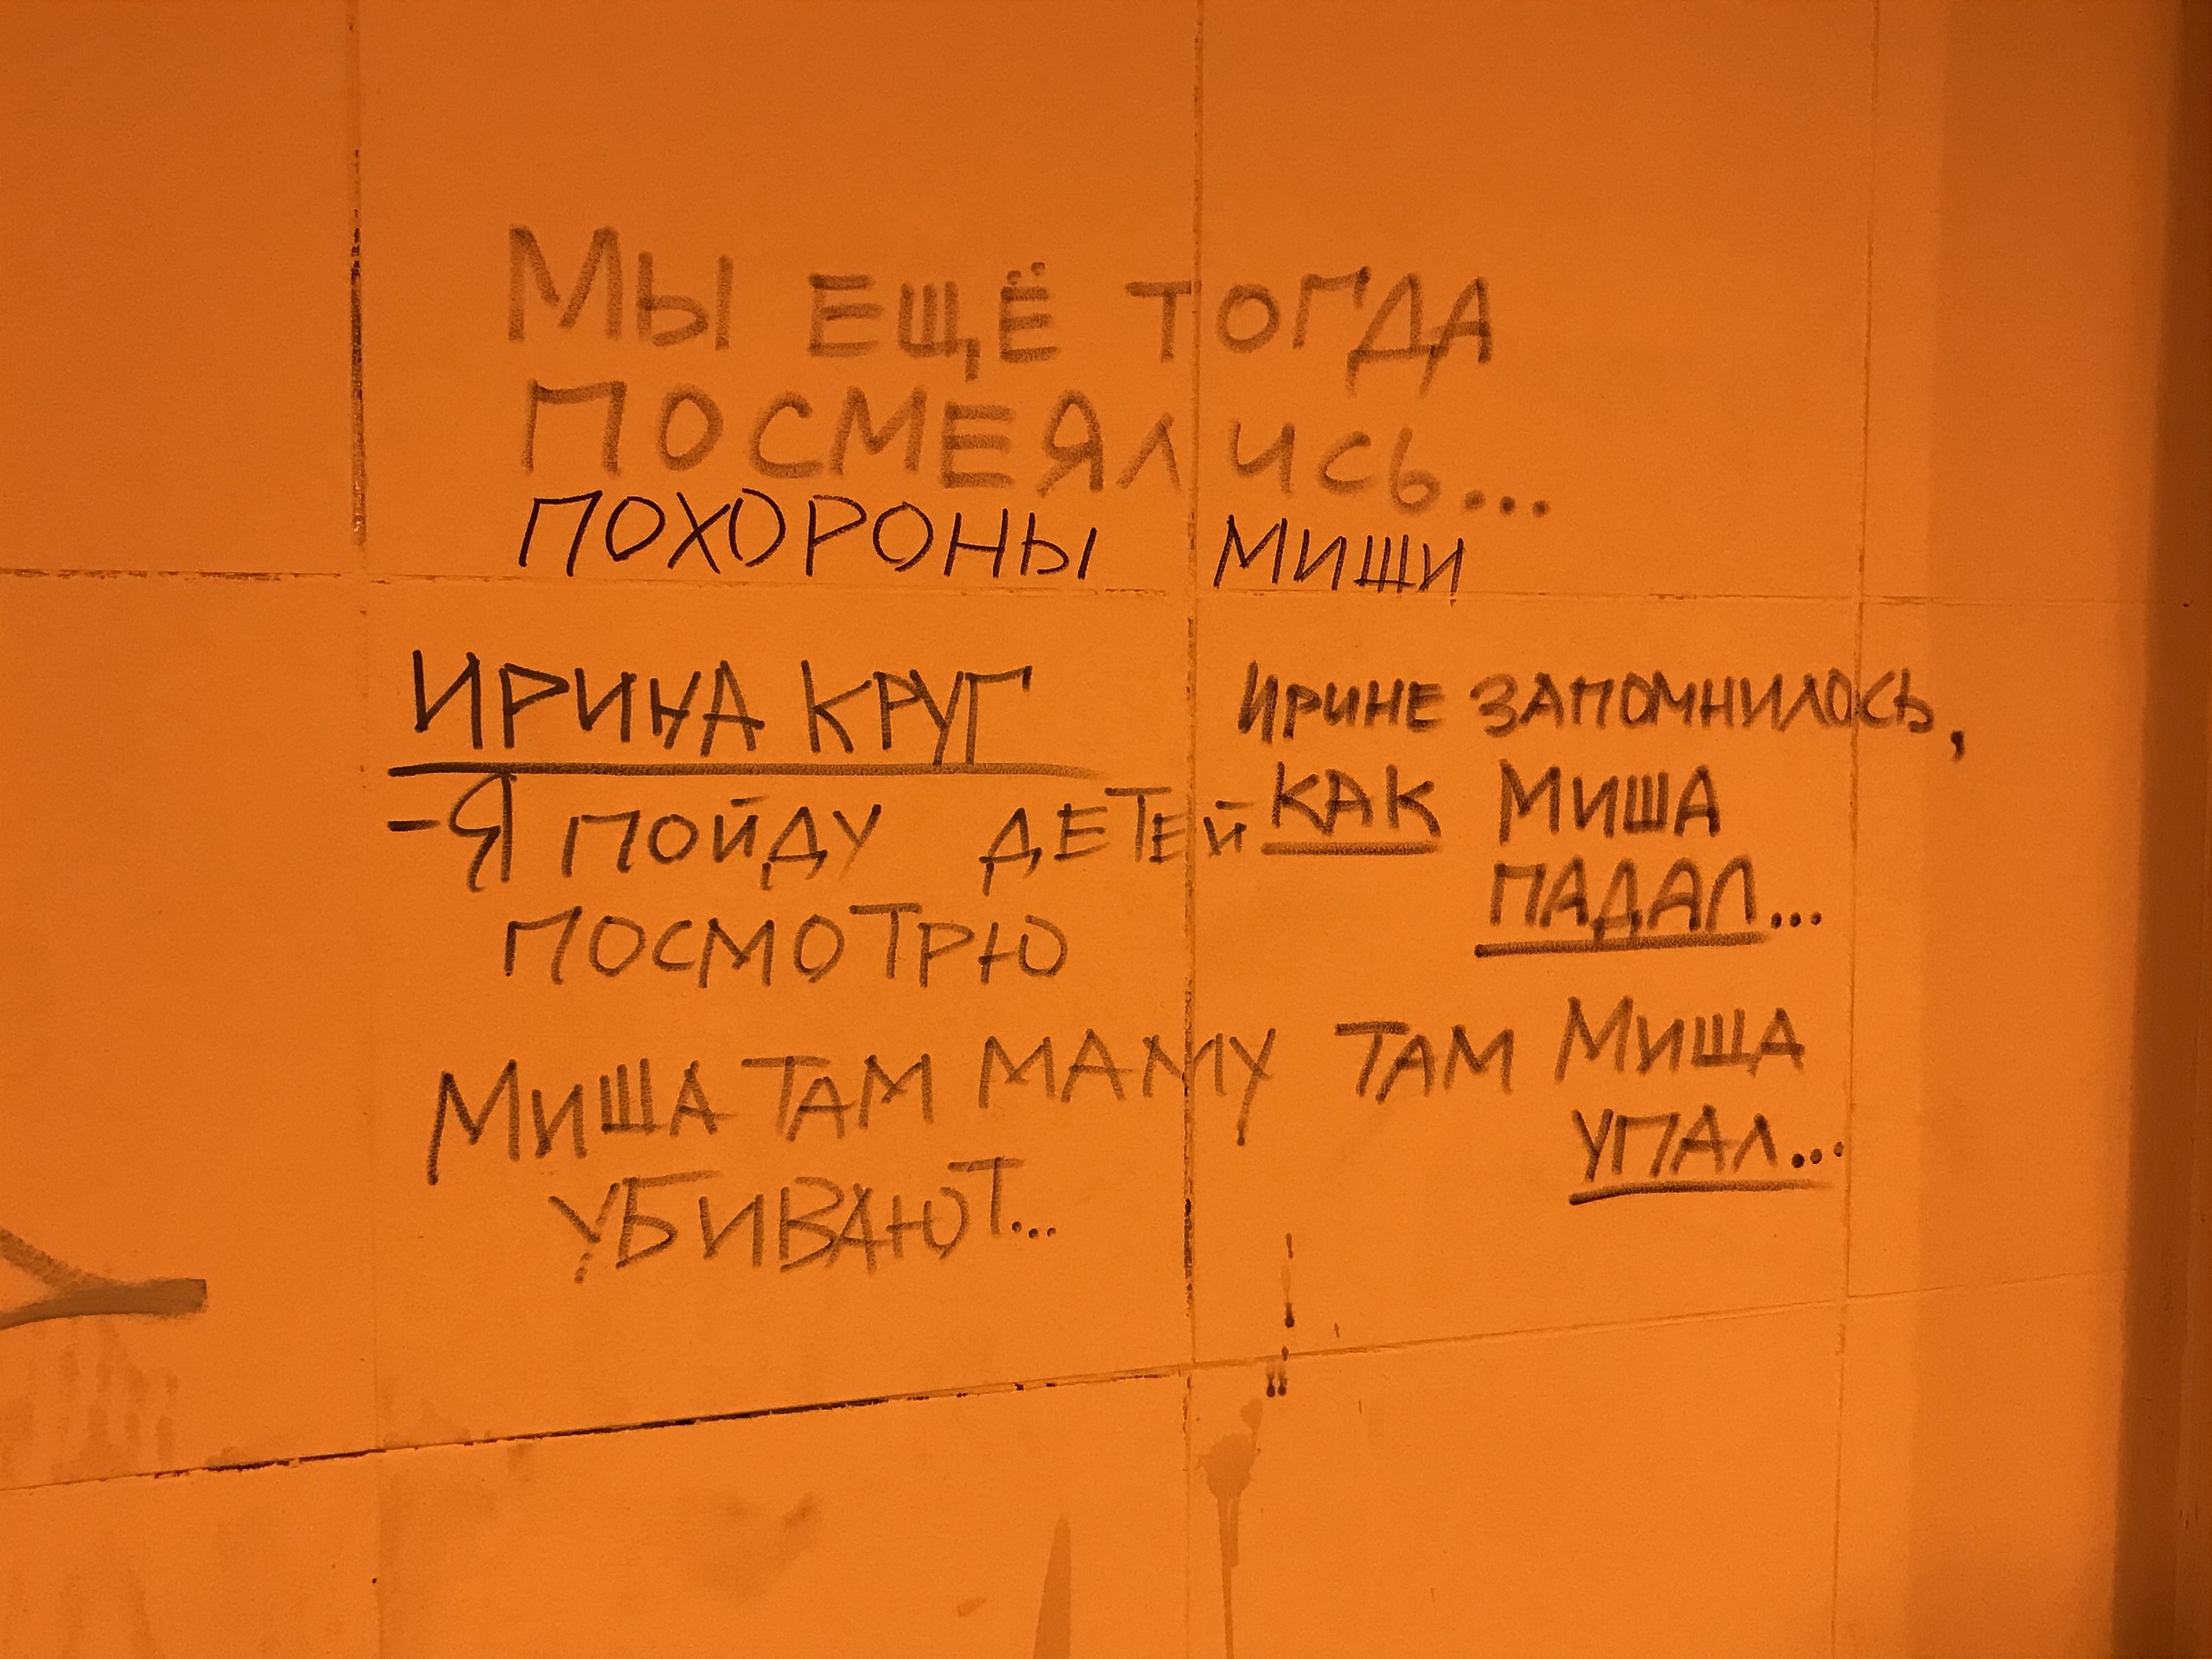 МЫ ЕЩЁ ТОГДА
ПОСМЕЯЛИСЬ...
ПОХОРОНЫ МИШИ
ИРИНА КРУГ
-Я ПОЙДУ ДЕТЕЙ
ПОСМОТРЮ
МИША ТАМ МАМУ
УБИВАЮТ...
ИРИНЕ ЗАПОМНИЛОСЬ,
КАК МИША
ПАДАЛ...
ТАМ МИША
УПАЛ...